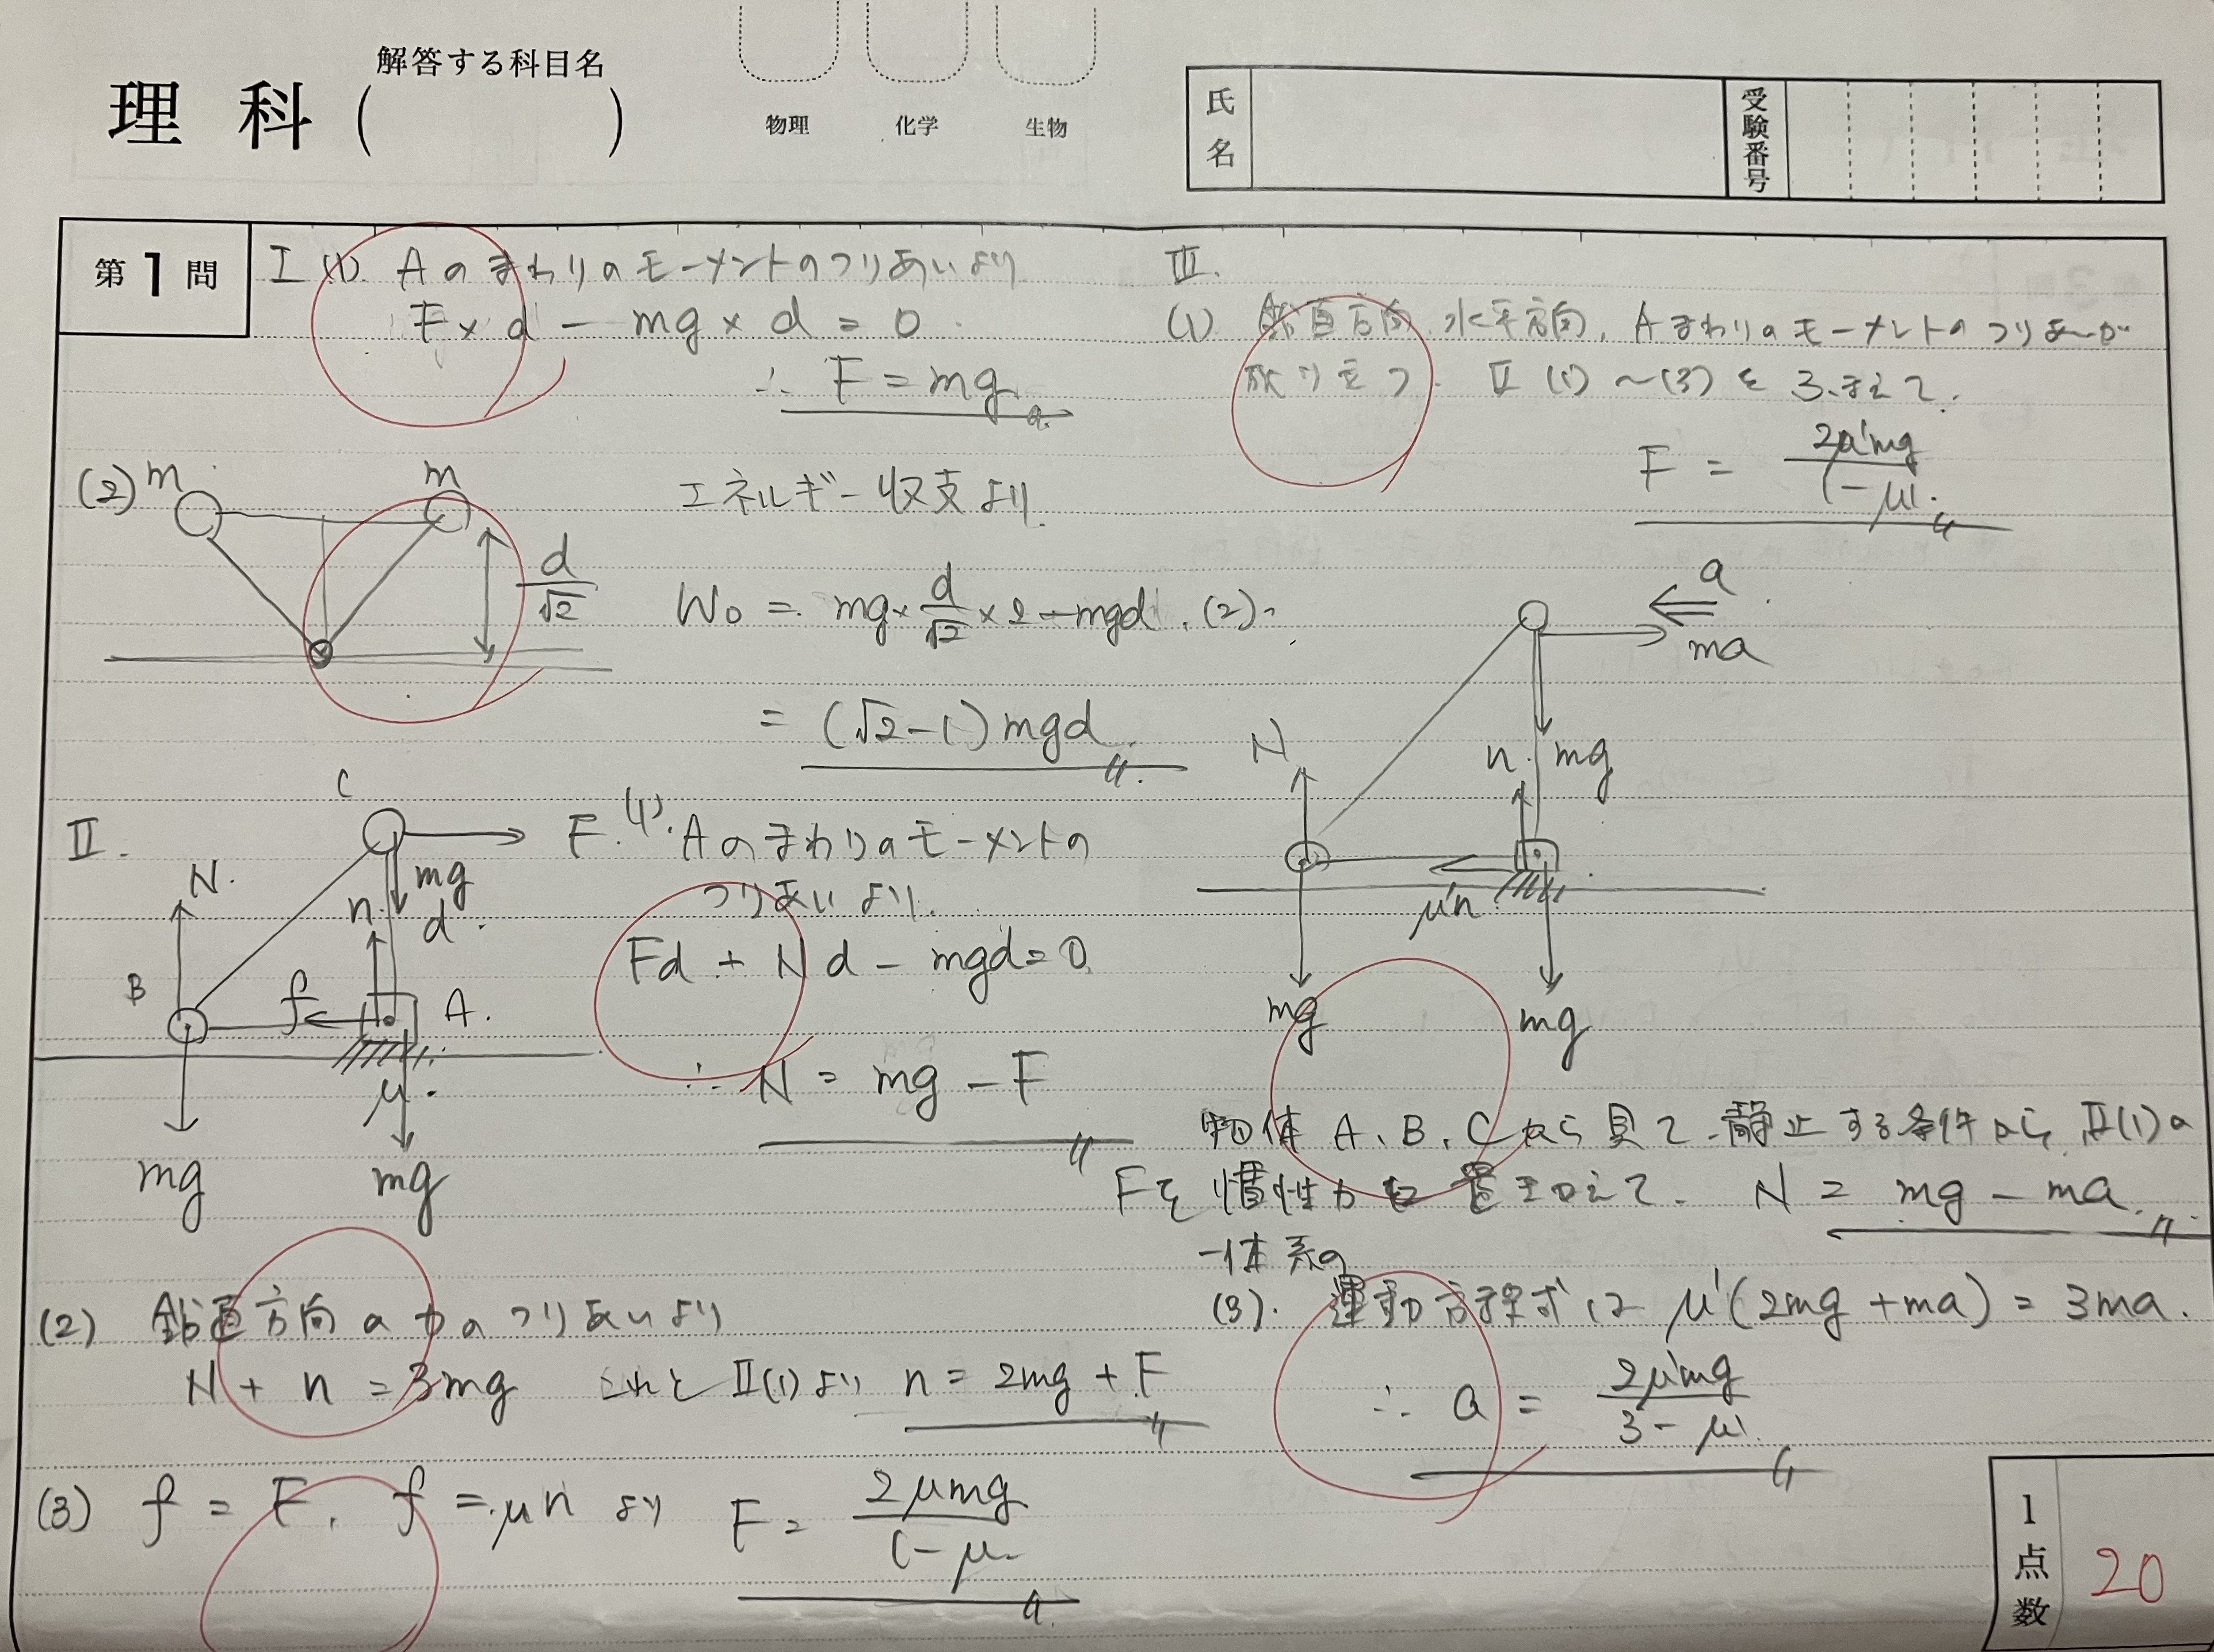 解答する科目名
理 科 ( )
物理 化学 生物
氏名
受験番号
第1問
I (1). Aのまわりのモーメントのつりあいより
F × d − mg × d = 0
∴ F = mg
(2) m m
d/√2
エネルギー収支より
W0 = mg × d/√2 × 2 − mgd
= (√2−1)mgd
II.
C
F
mg
d
N
n
B
f
A.
μ
mg
mg
(1). Aのまわりのモーメントの
つりあいより
Fd + Nd − mgd = 0
∴ N = mg − F
(2) 鉛直方向の力のつりあいより
N + n = 3mg これと II(1)より n = 2mg + F
(3) f = F, f = μn より F = 2μmg/(1−μ)
III.
(1) 鉛直方向, 水平方向, Aまわりのモーメントのつりあいが
成り立つ. II (1)〜(3)をふまえて,
F = 2μ'mg/(1−μ')
(2).
a
ma
N
n
mg
μ'n
mg
mg
物体 A, B, C から見て, 静止する条件から, II(1)の
Fを慣性力に置きかえて. N = mg − ma
一体系の
(3). 運動方程式は μ'(2mg + ma) = 3ma.
∴ a = 2μ'mg/(3−μ')
1点数
20